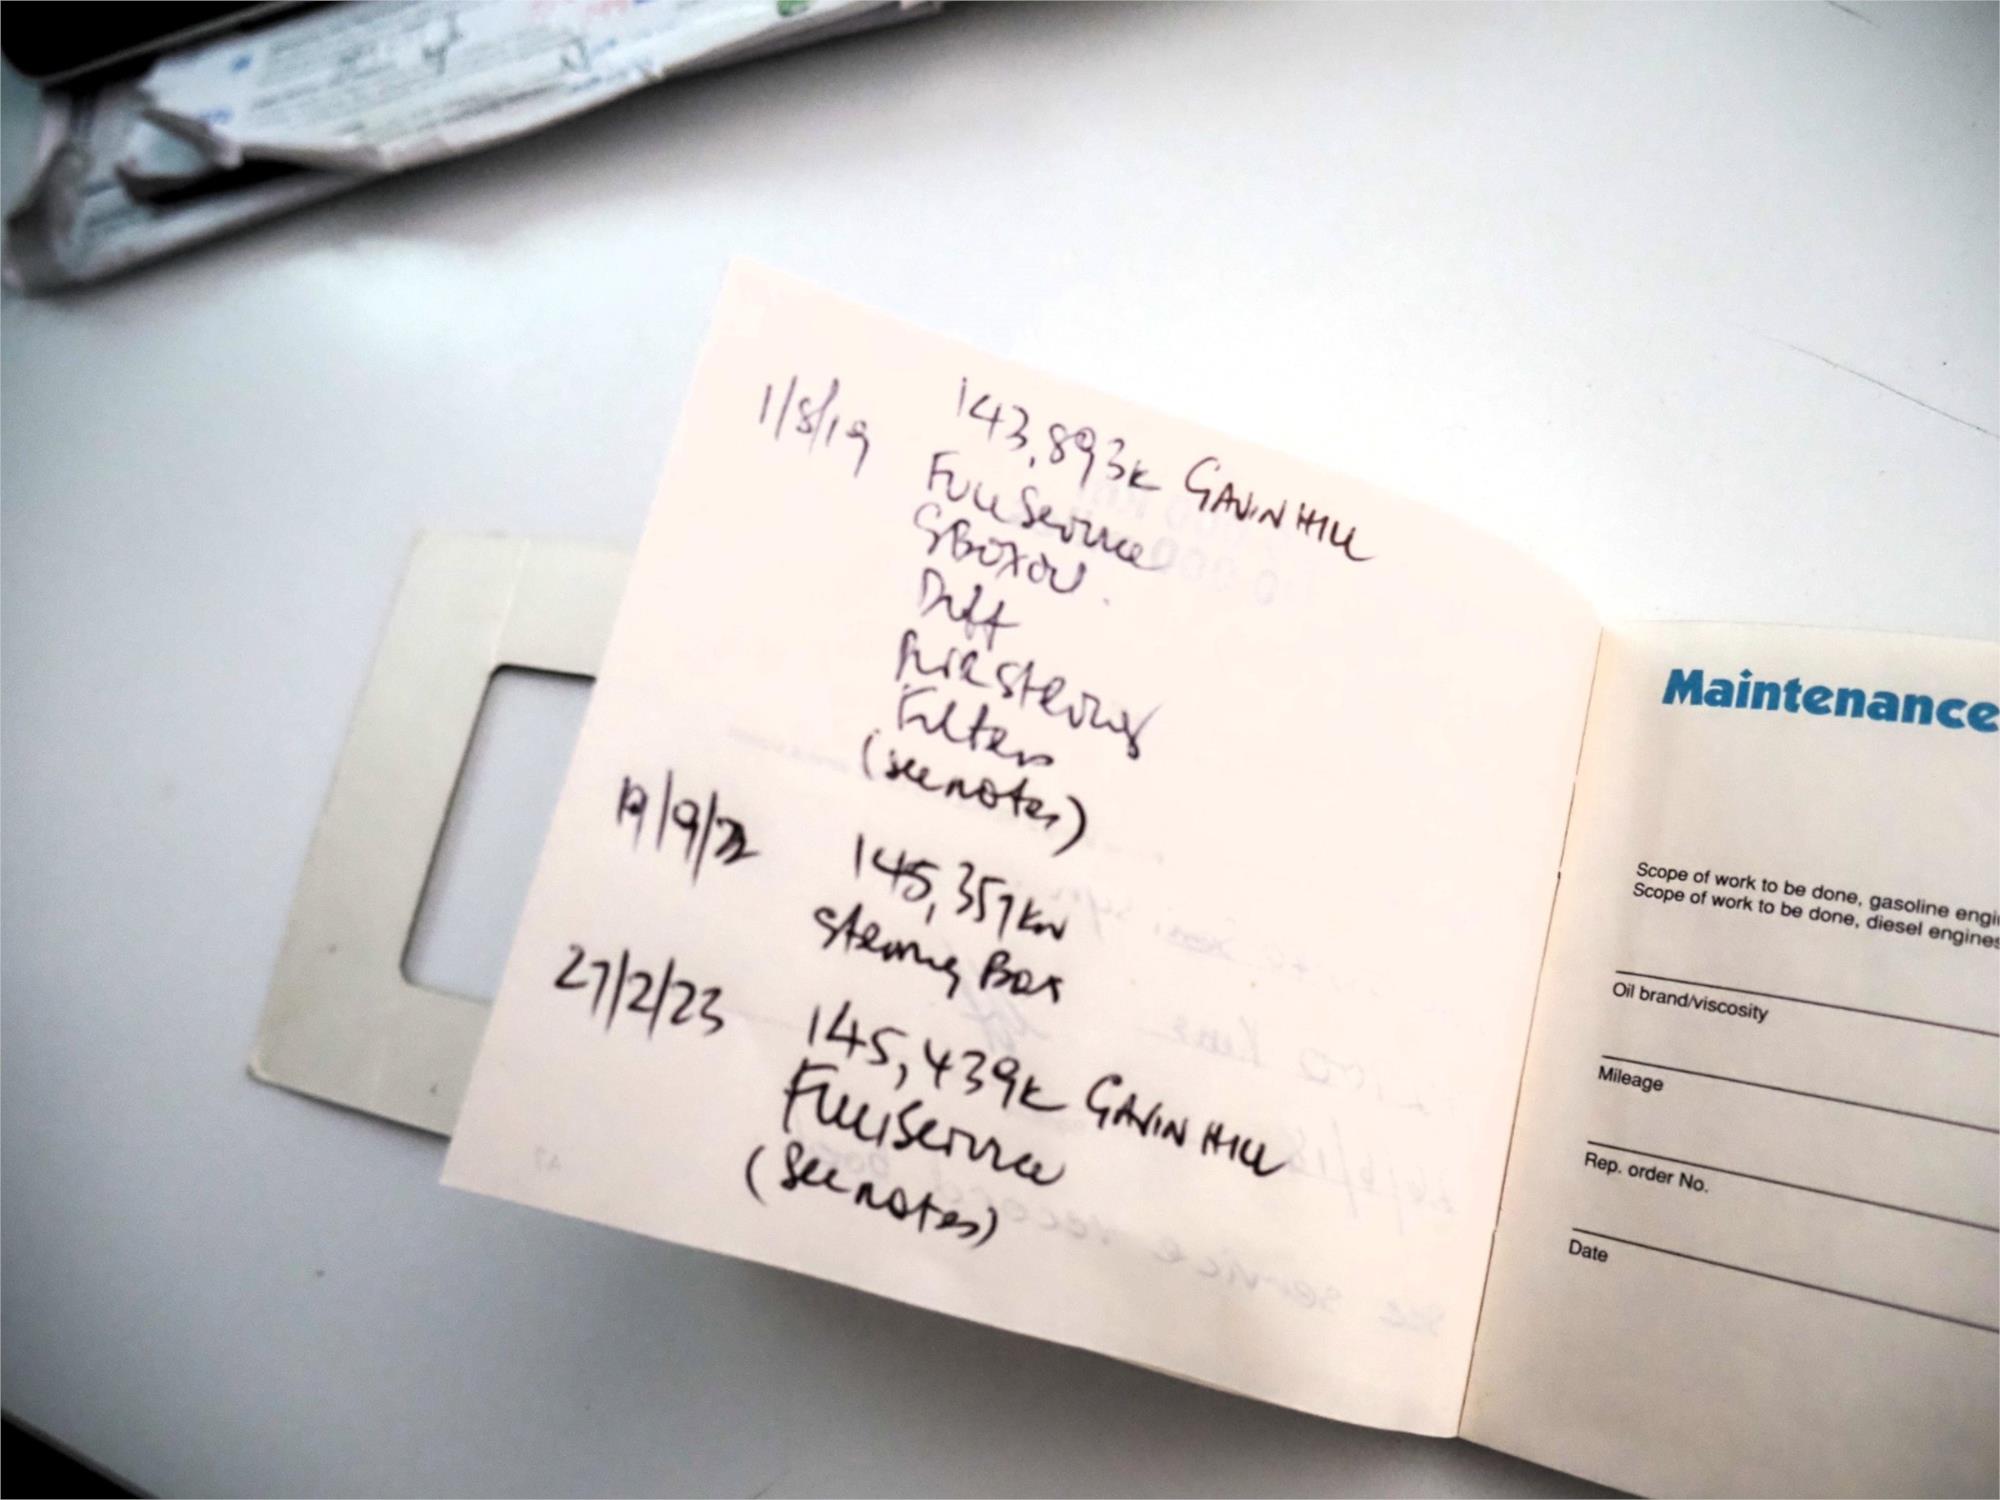 1/8/19 143,893k GAVIN HILL
Full Service
GBox oil
Diff
Steering
Filters
(see notes)
/9/22 145,357km
Steering Box
27/2/23 145,439k GAVIN HILL
Full Service
(see notes)
Maintenance
Scope of work to be done, gasoline engi
Scope of work to be done, diesel engines
Oil brand/viscosity
Mileage
Rep. order No.
Date